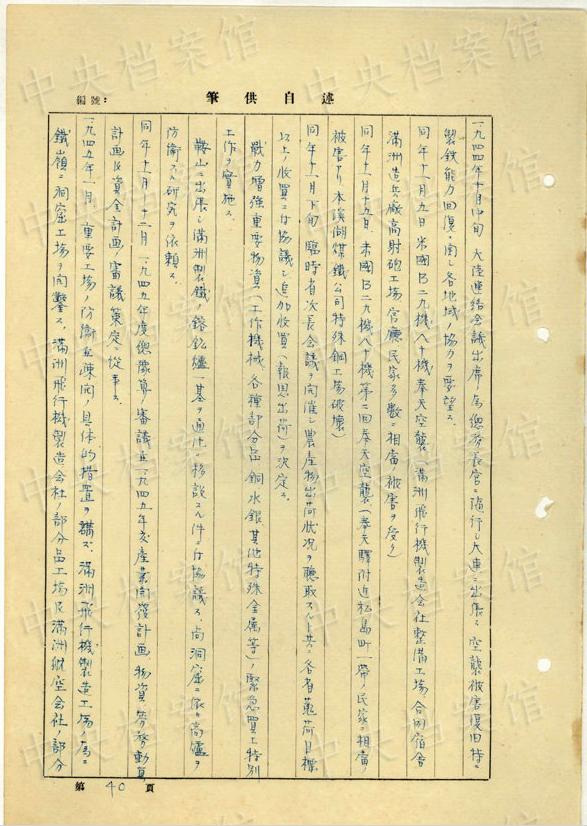 述自供筆
編號：
一九四四年十月中旬 大陸連絡会議出席ノ為總務長官ニ随行シ大連ニ出張シ 空襲被害復旧特ニ
製鉄能力回復ニ関シ各地域ノ協力ヲ要望ス
同年十二月五日米國B二九機八十機奉天空襲（満洲飛行機製造会社整備工場 合同宿舎
満洲造兵廠高射砲工場官廳民家多数ニ相當ノ被害ヲ受ク）
同年十二月十五日 米國B二九機八十機第二回奉天空襲（奉天驛附近松島町一帯ノ民家ニ相當ノ
被害アリ、本溪湖煤鐵公司特殊鋼工場破壊）
同年十一月下旬 臨時省次長会議ヲ開催シ農産物出荷状況ヲ聽取スルト共ニ各省蒐荷目標
以上ノ收買ニ付協議シ追加收買（報恩出荷）ヲ決定ス
戰力増强重要物資（工作機械、各種部分品、銅水銀其他特殊金属等）ノ緊急買上特別
工作ヲ實施ス
鞍山ニ出張シ満洲製鐵ノ鎔鉱爐一基ヲ通化ニ移設スル件ニ付協議ス、尚洞窟ニ依ル高爐ヲ
防衛スル研究ヲ依頼ス
同年十一月、十二月 一九四五年度總豫算ノ審議並一九四五年度産業開發計画、物資勞務動員
計画及資金計画ノ審議策定ニ從事ス
一九四五年一月 重要工場ノ防衛並疎開ノ具体的措置ヲ講ズ、満洲飛行機製造工場ノ為ニ
鐵嶺ニ洞窟工場ヲ開鑿ス、満洲飛行機製造会社ノ部分品工場及満洲航空会社ノ部分
第 40 頁
中央档案馆